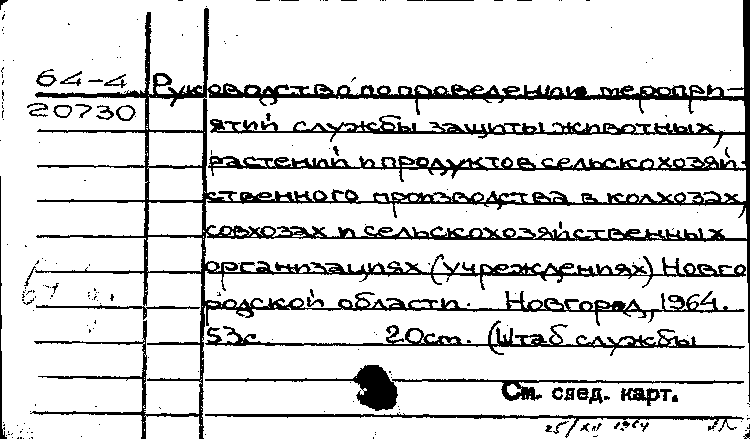 64-4 Руководство по проведению меропри-
20730
ятий службы защиты животных,
растений и продуктов сельскохозяй-
ственного производства в колхозах,
совхозах и сельскохозяйственных
организациях (учреждениях) Новго
родской области. Новгород, 1964.
53с. 20см. (Штаб службы
См. след. карт.
25/XII 1964